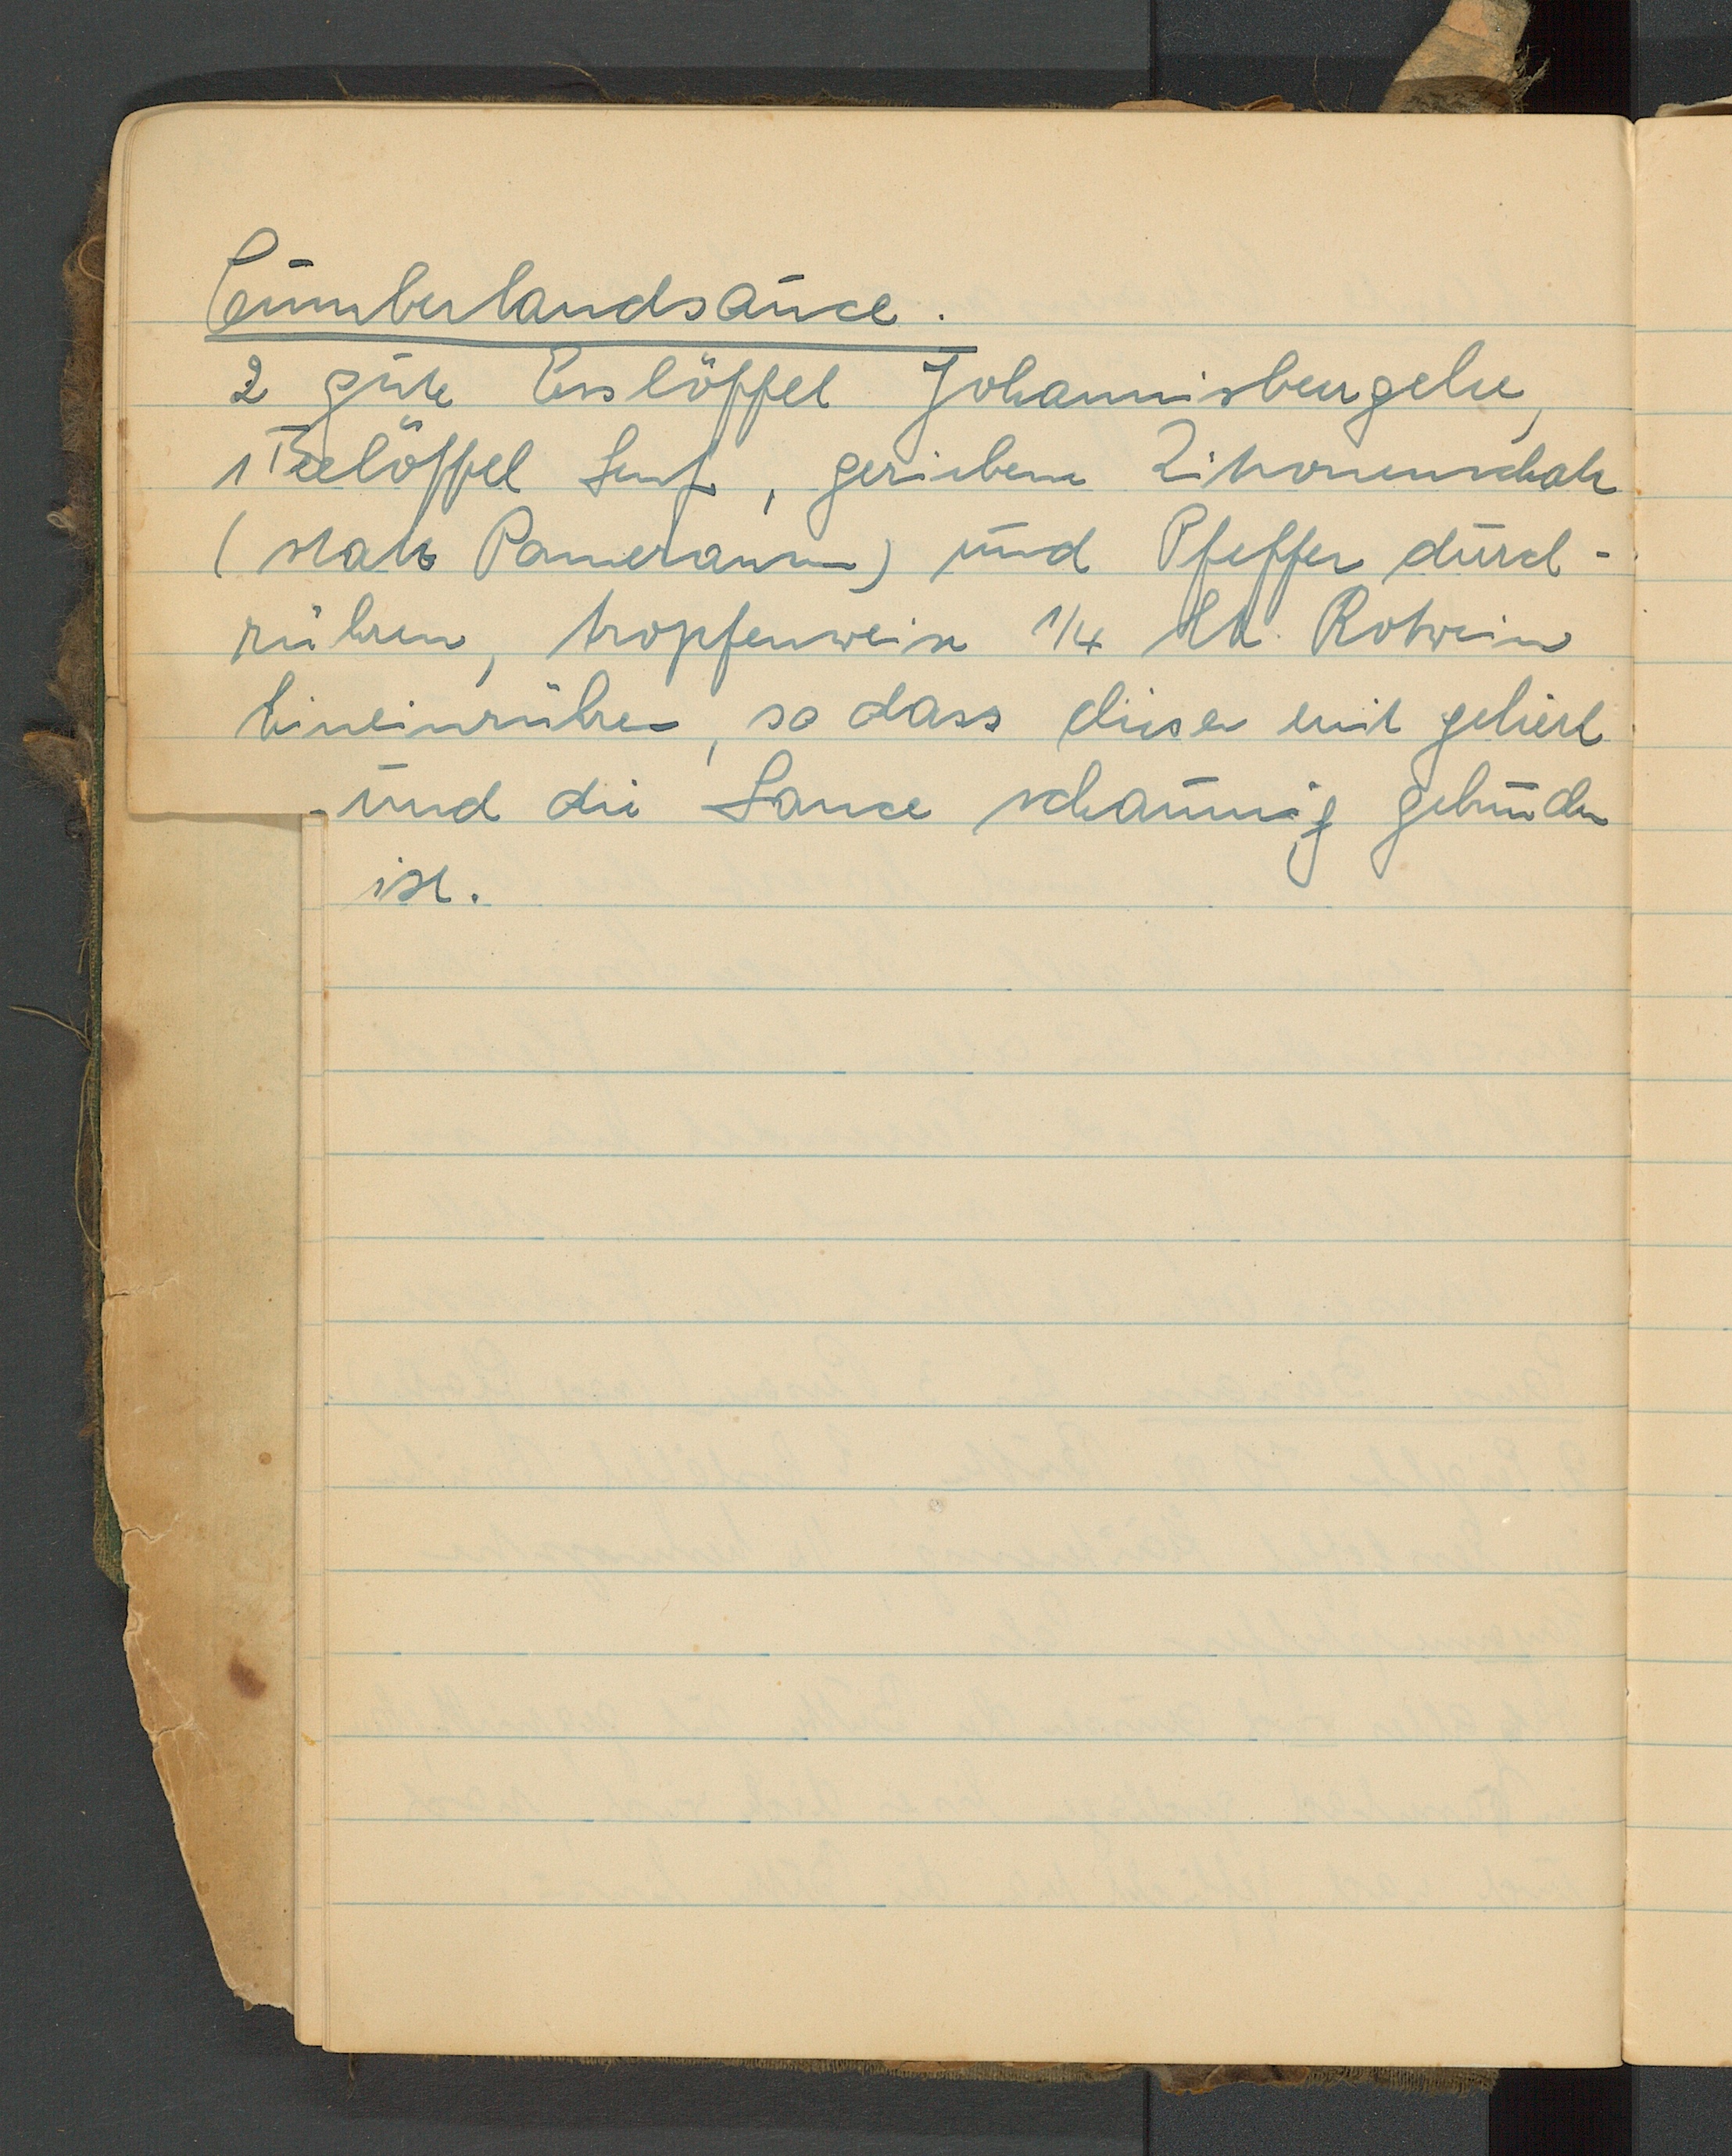 Cumberlandsauce.
2 gute Esslöffel Johannisbeergelee,
1 Teelöffel Senf, geriebene Zitronenschale
(statt Pomeranzen) und Pfeffer durch-
rühren, tropfenweise 1/4 ltr. Rotwein
hineinrühren, so dass dieser mit geliert
und die Sauce schaumig gebunden
ist.